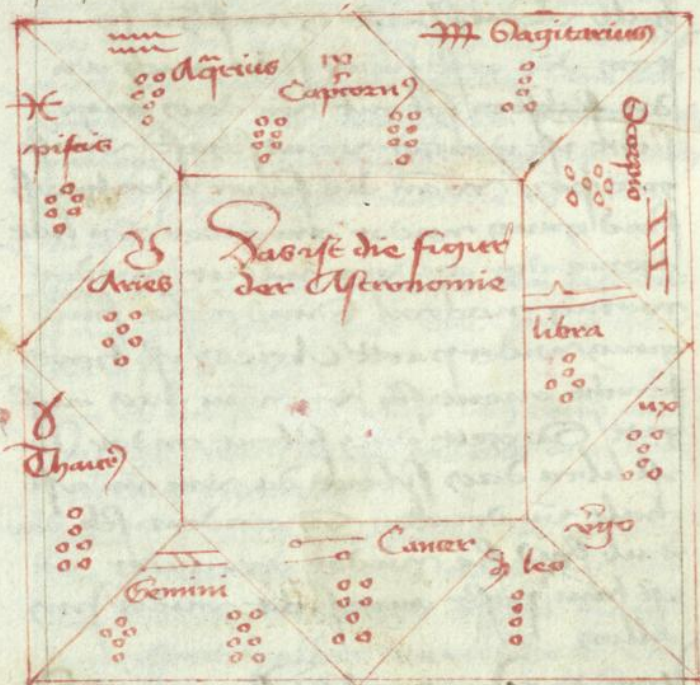 Aq̄rius
Cap̃cornꝰ
Sagitarius
Scorpio
piſcis
Aries
Das iſt die figur
der Aſtronomie
libra
Thaurꝰ
v̄go
Cancer
leo
Gemini